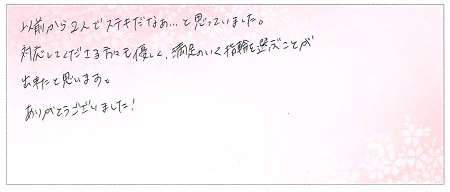 以前から2人でステキだなぁ…と思っていました。
対応してくださる方も優しく、満足のいく指輪を選ぶことが
出来たと思います。
ありがとうございました!